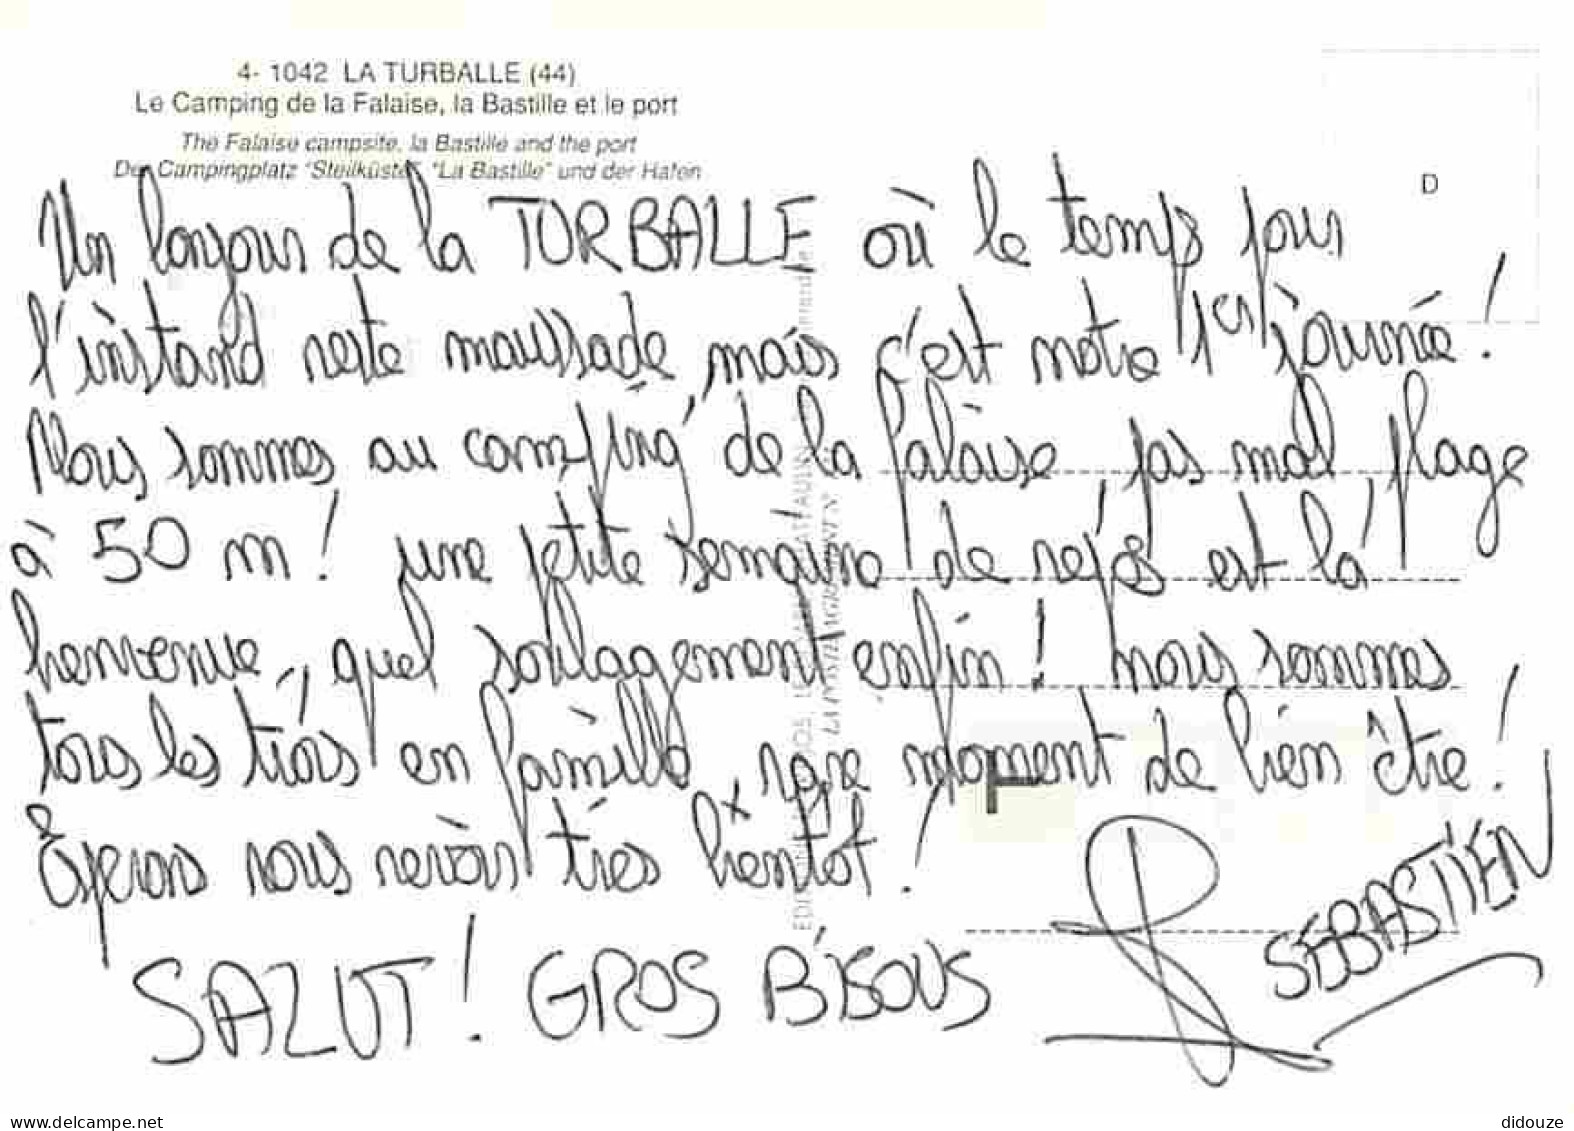 4- 1042 LA TURBALLE (44)
Le Camping de la Falaise, la Bastille et le port
The Falaise campsite, la Bastille and the port
Der Campingplatz "Steilküste", "La Bastille" und der Hafen
D
Un bonjour de la TURBALLE où le temps pour
l'instand reste maussade, mais c'est notre 1er journée !
Nous sommes au camping de la falaise, pas mal, plage
à 50 m ! une petite semaine de repos est la
bienvenue, quel soulagement enfin ! nous sommes
tous les trois en famille, rare moment de bien être !
Espérons nous revoir très bientot !
SALUT ! GROS BISOUS
SÉBASTIEN
delcampe.net
didouze